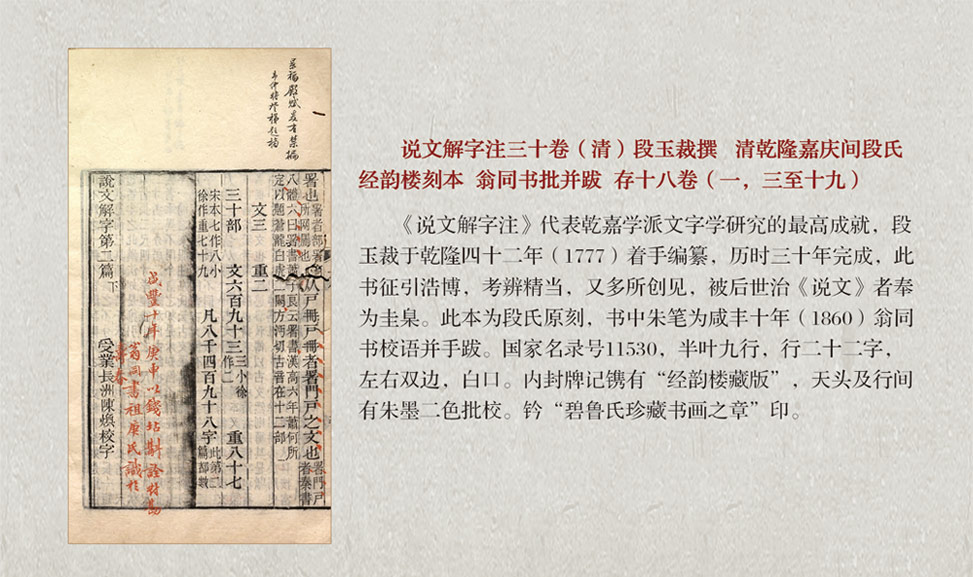 说文解字注三十卷（清）段玉裁撰 清乾隆嘉庆间段氏
经韵楼刻本 翁同书批并跋 存十八卷（一，三至十九）
《说文解字注》代表乾嘉学派文字学研究的最高成就，段
玉裁于乾隆四十二年（1777）着手编纂，历时三十年完成，此
书征引浩博，考辨精当，又多所创见，被后世治《说文》者奉
为圭臬。此本为段氏原刻，书中朱笔为咸丰十年（1860）翁同
书校语并手跋。国家名录号11530，半叶九行，行二十二字，
左右双边，白口。内封牌记镌有“经韵楼藏版”，天头及行间
有朱墨二色批校。钤“碧鲁氏珍藏书画之章”印。
从戶冊戶冊者署門戶之文也
文三 重二
三十部 文六百九十三 重八十七
宋本七作八小
徐作重七十九
凡八千四百九十八字
說文解字第二篇下
受業長洲陳煥校字
咸豐十年庚申以錢坫斠詮對勘
翁同書祖庚氏識於